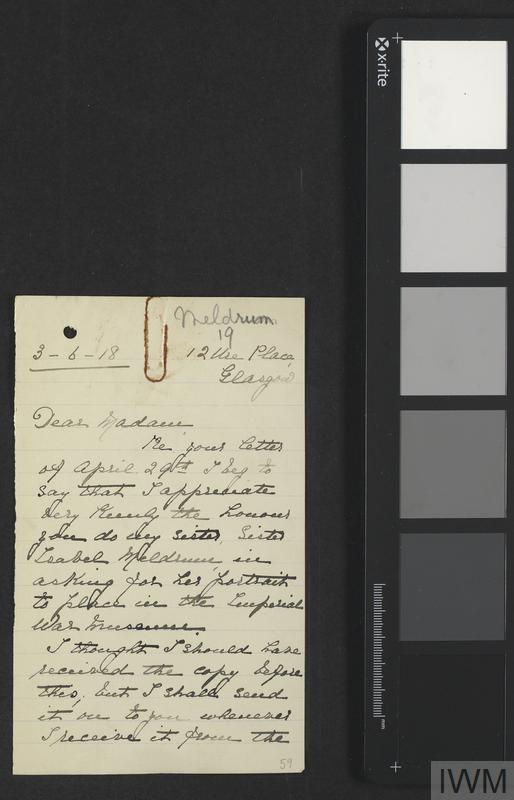 Meldrum
19
3-6-18
12 Ure Place
Glasgow
Dear Madam
Re your letter
of April 29th I beg to
say that I appreciate
very keenly the honour
you do my sister, Sister
Isabel Meldrum in
asking for her portrait
to place in the Imperial
War Museum.
I thought I should have
received the copy before
this, but I shall send
it on to you whenever
I receive it from the
59
x-rite
mm
IWM